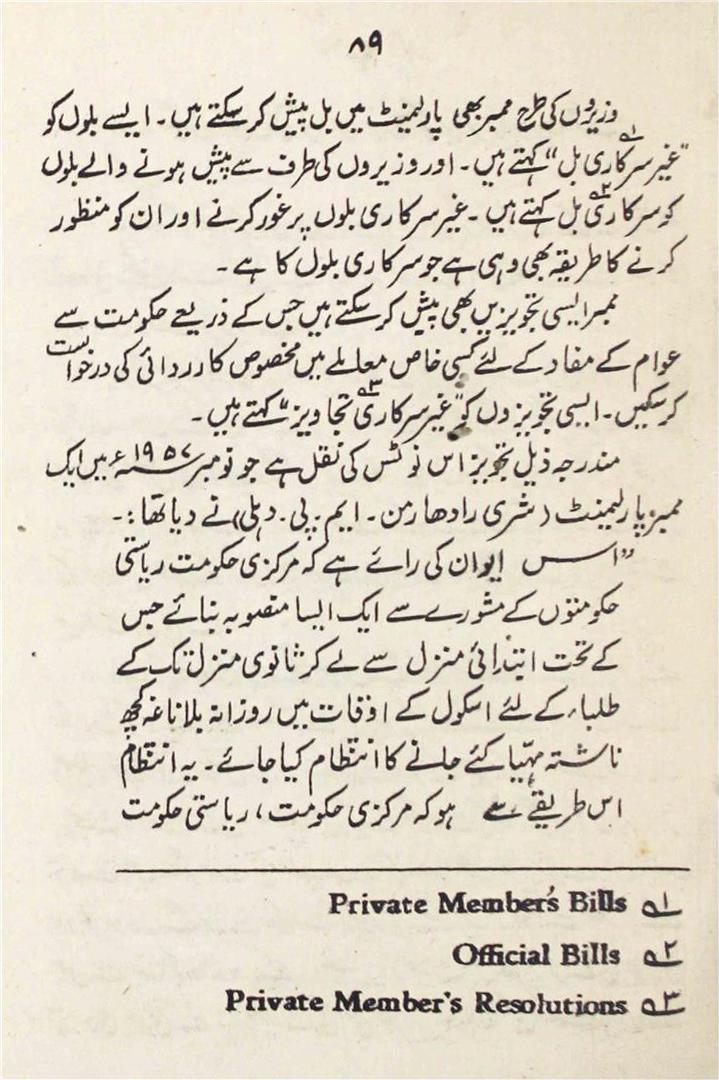 ۸۹
وزیروں کی طرح ممبر بھی پارلیمنٹ میں بل پیش کر سکتے ہیں۔ ایسے بلوں کو
"غیر سرکاری بل"۱؎ کہتے ہیں۔ اور وزیروں کی طرف سے پیش ہونے والے بلوں
کو سرکاری۲؎ بل کہتے ہیں۔ غیر سرکاری بلوں پر غور کرنے اور ان کو منظور
کرنے کا طریقہ بھی وہی ہے جو سرکاری بلوں کا ہے۔
ممبر ایسی تجویزیں بھی پیش کر سکتے ہیں جس کے ذریعے حکومت سے
عوام کے مفاد کے لئے کسی خاص معاملے میں مخصوص کارروائی کی درخواست
کر سکیں۔ ایسی تجویزوں کو "غیر سرکاری۳؎ تجاویز" کہتے ہیں۔
مندرجہ ذیل تجویز اس نوٹس کی نقل ہے جو نومبر ۱۹۵۷ء میں ایک
ممبر پارلیمنٹ (شری رادھا رمن۔ ایم۔ پی۔ دہلی) نے دیا تھا:۔
"اس ایوان کی رائے ہے کہ مرکزی حکومت ریاستی
حکومتوں کے مشورے سے ایک ایسا منصوبہ بنائے جس
کے تحت ابتدائی منزل سے لے کر ثانوی منزل تک کے
طلباء کے لئے اسکول کے اوقات میں روزانہ بلاناغہ کچھ
ناشتہ مہیا کئے جانے کا انتظام کیا جائے۔ یہ انتظام
اس طریقے سے ہو کہ مرکزی حکومت، ریاستی حکومت
۱؎ Private Member's Bills
۲؎ Official Bills
۳؎ Private Member's Resolutions